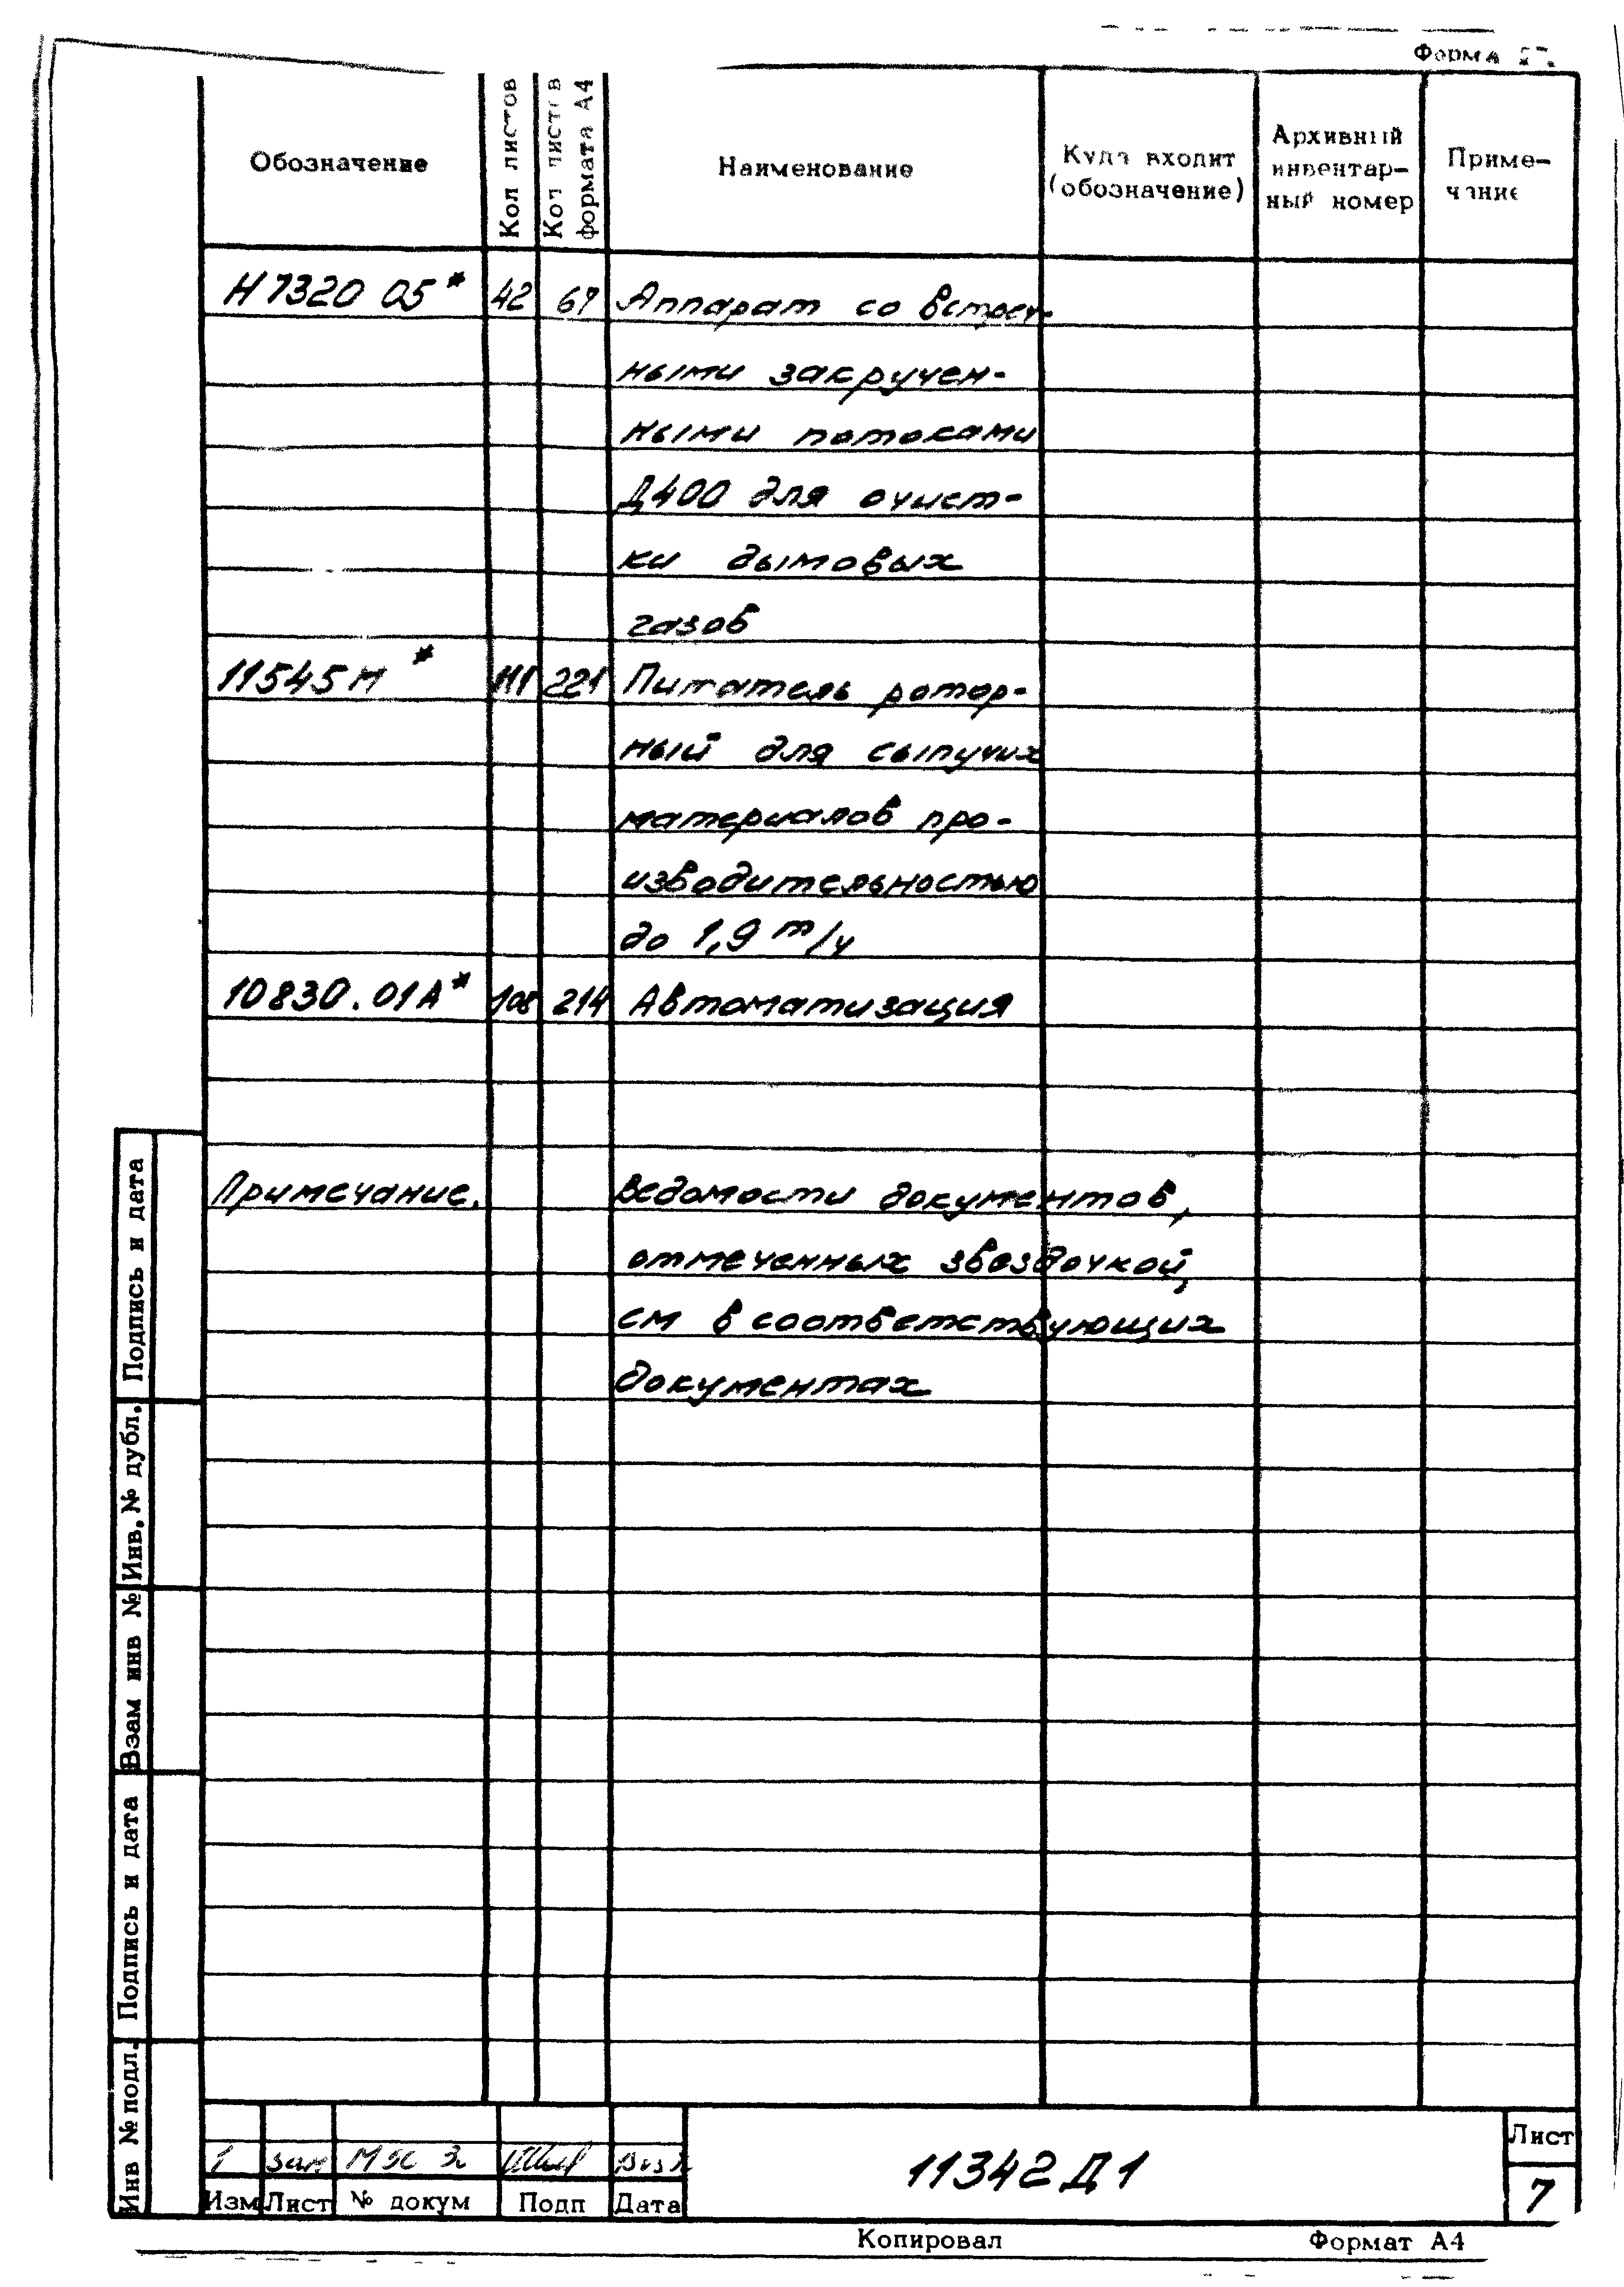 Форма
Обозначение
Кол листов
Кол листов
формата А4
Наименование
Куда входит
(обозначение)
Архивный
инвентар-
ный номер
Приме-
чание
Н7320 05* 42 67 Аппарат со встреч-
ными закручен-
ными потоками
Д400 для очист-
ки дымовых
газов
11545М* 111 221 Питатель ротор-
ный для сыпучих
материалов про-
изводительностью
до 1,9 т/ч
10830.01А* 108 214 Автоматизация
Примечание. Ведомости документов,
отмеченных звездочкой,
см в соответствующих
документах
Подпись и дата
Инв. № дубл.
Взам инв №
Подпись и дата
Инв № подл.
1 зам
Изм Лист № докум Подп Дата
11342Д1
Лист
7
Копировал Формат А4